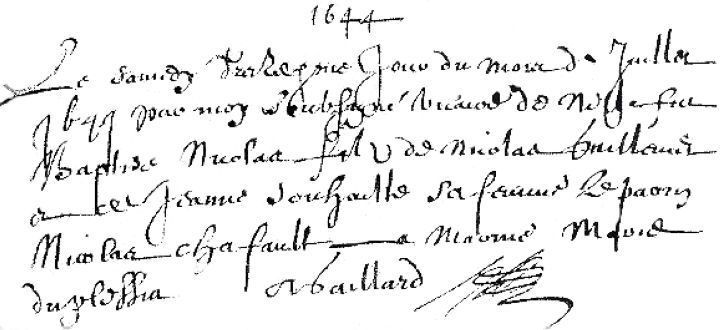 1644
Le samedy seziesme Jour du mois de Juillet
1644 par moy soubsigné vicaire de fut
Baptisé Nicolas fils de Nicolas Guillemer
et de Jeanne souhaille sa femme le parin
Nicolas chafault la marine Marie
duplessis Abaillard